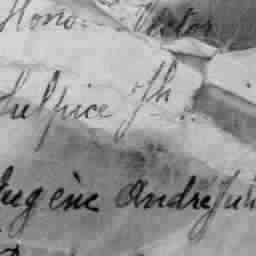 Hono Victor
Sulpice Th
Eugène André Juli